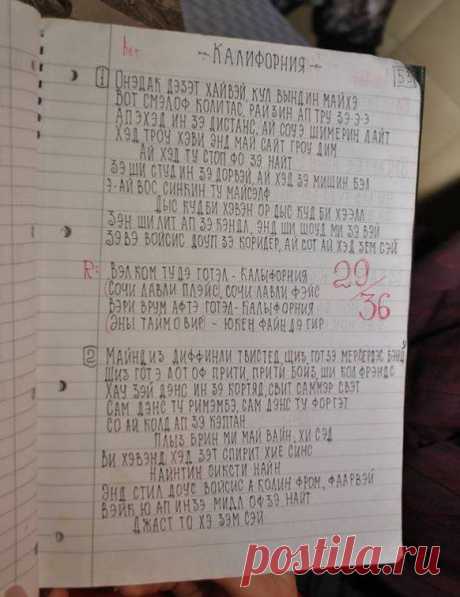 het
- КАЛИФОРНИЯ -
53
1 ОНЭДАК ДЭЗЭТ ХАЙВЭЙ, КУЛ ВЫНДИН МАЙХЭ
ВОТ СМЭЛОФ КОЛИТАС, РАЙЗИН АП ТРУ ЗЭ Э-Э
АП ЭХЭД ИН ЗЭ ДИСТАНС, АЙ СОУЭ ШИМЕРИН ЛАЙТ
ХЭД ТРОУ ХЭВИ ЭНД МАЙ САЙТ ГРОУ ДИМ
АЙ ХЭД ТУ СТОП ФО ЗЭ НАЙТ
ЗЭ ШИ СТУД ИН ЗЭ ДОРВЭЙ, АЙ ХЭД ЗЭ МИШИН БЭЛ
Э-АЙ ВОС, СИНКИН ТУ МАЙСЭЛФ
ДЫС КУД БИ ХЭВЭН ОР ДЫС КУД БИ ХЭЭЛЛ
ЗЭН ШИ ЛИТ АП ЗЭ КЭНДЛ, ЭНД ШИ ШОУД МИ ЗЭ ВЭЙ
ЗЭ ВЭ ВОЙСИС ДОУП ЗЭ КОРИДЕР, АЙ СОТ АЙ ХЭД ЗЕМ СЭЙ
R: ВЭЛКОМ ТУ ДЭ ГОТЭЛ - КАЛЫФОРНИЯ
(СОЧИ ЛАВЛИ ПЛЭЙС), СОЧИ ЛАВЛИ ФЭЙС
ВЭРИ ВРУМ АФТЭ ГОТЭЛ - КАЛЫФОРНИЯ
(ЭНЫ ТАЙМ О ВИР) - Ю КЕН ФАЙНД Э ГИР
29/36
2 МАЙНД ИЗ ДИФФИНЛИ ТВИСТЕД, ЩИЗ ГОТ ЗЭ МЕРСЕРДЭС БЭНД
ШИЗ ГОТ Э ЛОТ ОФ ПРИТИ, ПРИТИ БОЙЗ, ШИ КОЛ ФРЭНДС
ХАУ ЗЭЙ ДЭНС ИН ЗЭ КОРТЯД, СВИТ САММЭР СВЭТ
САМ ДЭНС ТУ РИМЭМБЭ, САМ ДЭНС ТУ ФОРГЭТ
СО АЙ КОЛД АП ЗЭ КЭПТАН
ПЛЫЗ БРИН МИ МАЙ ВАЙН, ХИ СЭД
ВИ ХЭВЭНД ХЭД ЗЭТ СПИРИТ ХИЕ СИНС
НАЙНТИН СИКСТИ НАЙН
ЭНД СТИЛ ДОУС ВОЙСИС А КОЛИН ФРОМ, ФААРВЭЙ
ВЭЙК Ю АП ИН ЗЭ МИДЛ ОФ ЗЭ НАЙТ
ДЖАСТ ТО ХЭ ЗЭМ СЭЙ